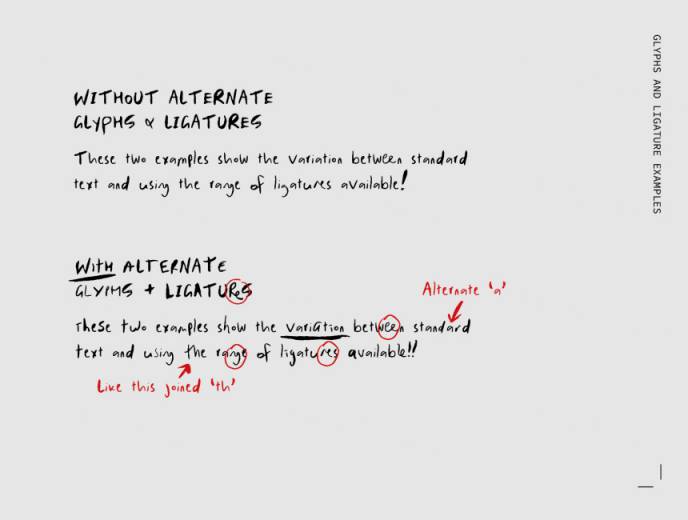 GLYPHS AND LIGATURE EXAMPLES
WITHOUT ALTERNATE
GLYPHS & LIGATURES
These two examples show the variation between standard
text and using the range of ligatures available!
WITH ALTERNATE
GLYPHS + LIGATURES
Alternate 'a'
These two examples show the variation between standard
text and using the range of ligatures available!!
Like this joined 'th'